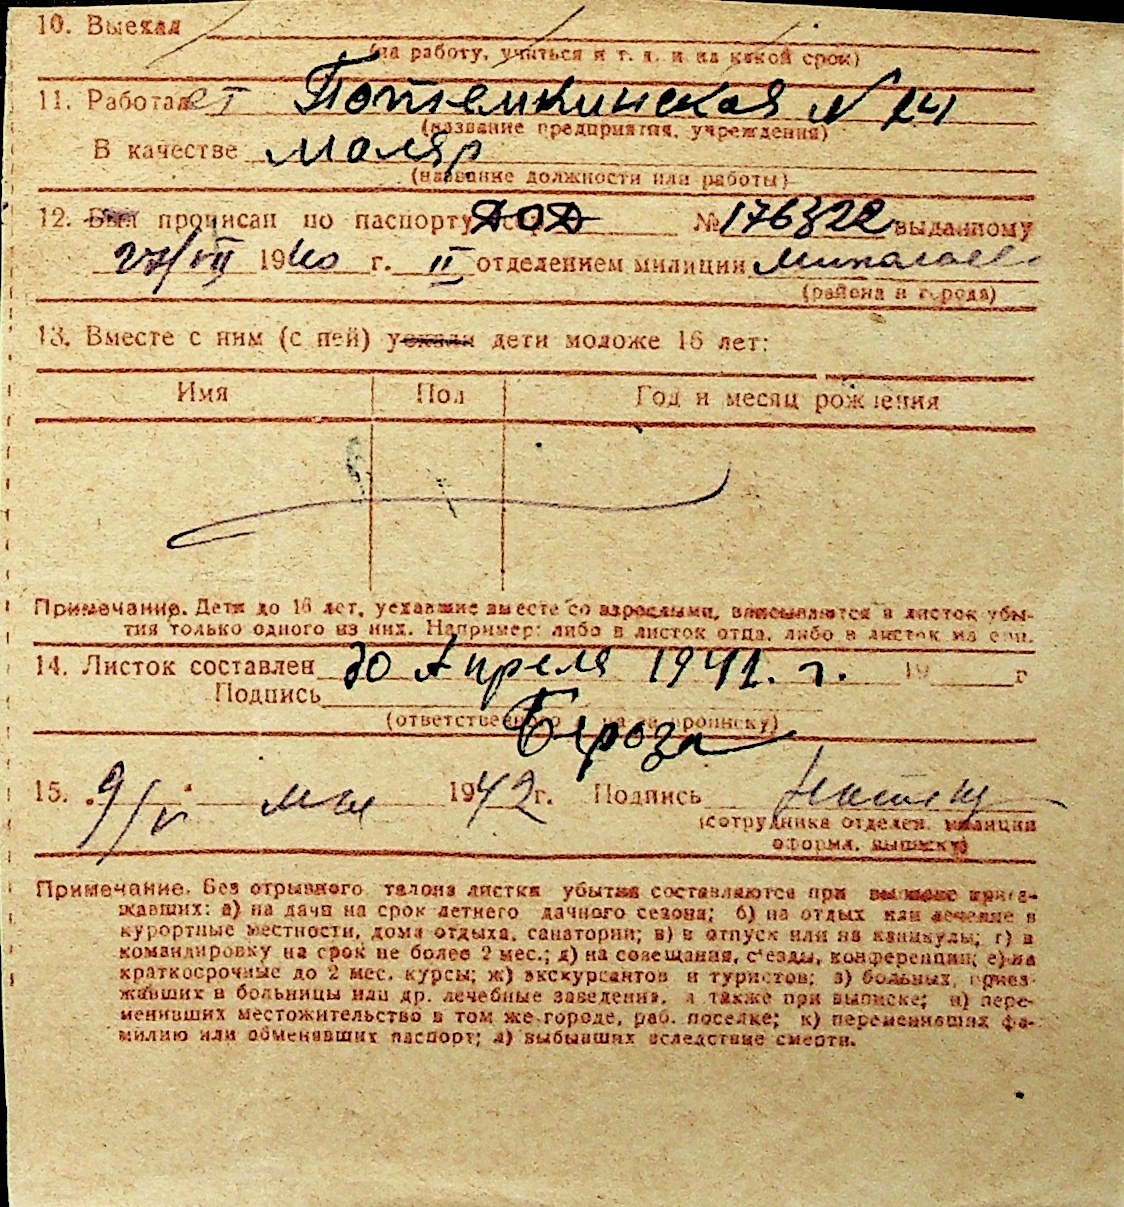 10. Выехал
(на работу, учиться и т. д. и на какой срок)
11. Работает Потемкинская N 24
(название предприятия, учреждения)
В качестве маляр
(название должности или работы)
12. Был прописан по паспорту ДОД № 176322 выданному
27/VII 1940 г. II отделением милиции
(района и города)
13. Вместе с ним (с ней) уехали дети моложе 16 лет:
Имя Пол Год и месяц рождения
Примечание. Дети до 16 лет, уехавшие вместе со взрослыми, вписываются в листок убы-
тия только одного из них. Например: либо в листок отца, либо в листок матери.
14. Листок составлен 30 Апреля 1941. г. 19 г
Подпись
(ответственного за прописку)
Береза
15. 9/V мая 1942 г. Подпись
(сотрудника отделен. милиции
оформ. выписку)
Примечание. Без отрывного талона листки убытия составляются при выписке приез-
жавших: а) на дачи на срок летнего дачного сезона; б) на отдых или лечение в
курортные местности, дома отдыха, санатории; в) в отпуск или на каникулы; г) в
командировку на срок не более 2 мес.; д) на совещания, съезды, конференции; е) на
краткосрочные до 2 мес. курсы; ж) экскурсантов и туристов; з) больных, приез-
жавших в больницы или др. лечебные заведения, а также при выписке; и) пере-
менивших местожительство в том же городе, раб. поселке; к) переменивших фа-
милию или обменявших паспорт; л) выбывших вследствие смерти.